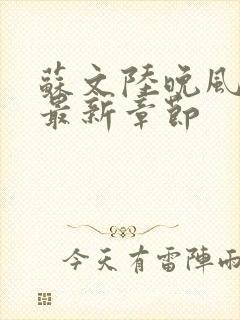 蘇文陸晚風
最新章節
今天有雷陣雨